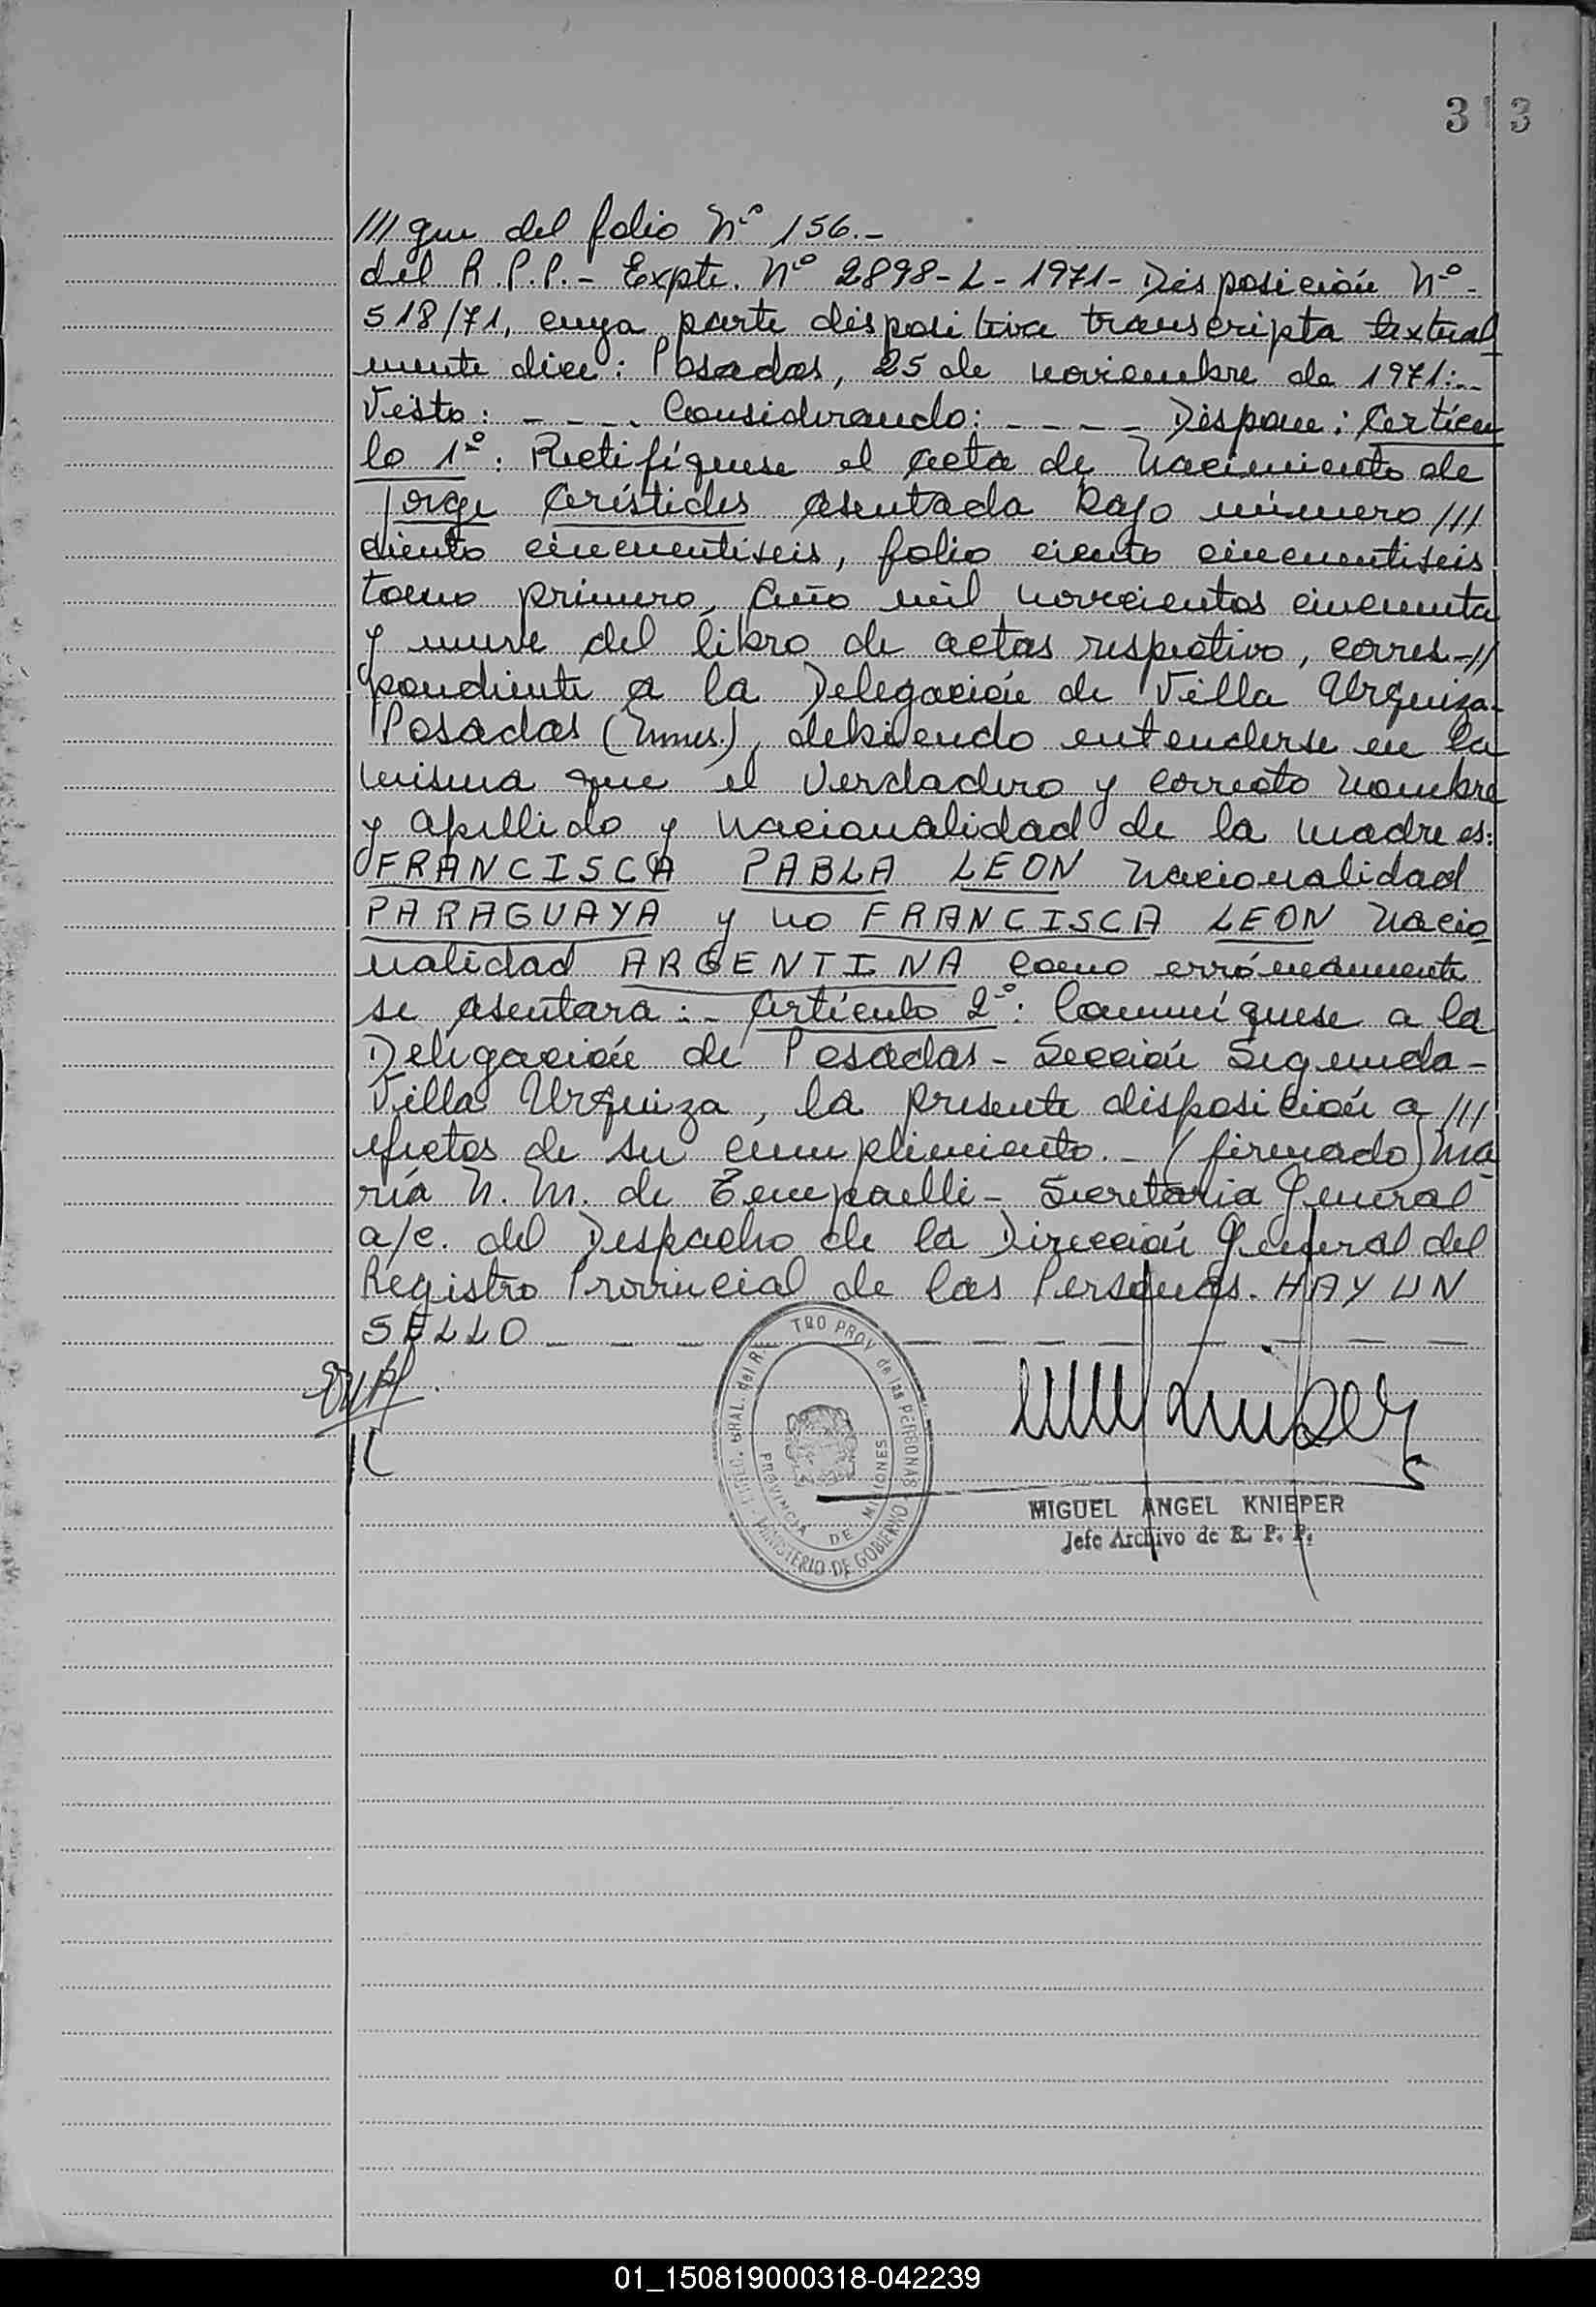 313
/// gue del folio Nº 156.-
del R.P.P.- Expte. Nº 2898-L-1971- Disposición Nº-
518/71, cuya parte dispositiva transcripta textual
mente dice: Posadas, 25 de noviembre de 1971:--
Visto: - - - - Considerando: - - - - Dispone: Artícu
lo 1º: Rectifíquese el acta de Nacimiento de
Jorge Arístides asentada bajo número ///
ciento cincuentiseis, folio ciento cincuentiseis
tomo primero, año mil novecientos cincuenta
y nueve del libro de actas respectivo, corres-//
pondiente a la Delegación de Villa Urquiza-
Posadas (Mnes.), debiendo entenderse en la
misma que el verdadero y correcto nombre
y apellido y nacionalidad de la madre es:
FRANCISCA PABLA LEON nacionalidad
PARAGUAYA y no FRANCISCA LEON nacio
nalidad ARGENTINA como erróneamente
se asentara:- Artículo 2º: Comuníquese a la
Delegación de Posadas - Sección Segunda-
Villa Urquiza, la presente disposición a ///
efectos de su cumplimiento.- (firmado) Ma
ría N. M. de - Secretaria General
a/c. del Despacho de la Dirección General del
Registro Provincial de las Personas. HAY UN
SELLO
DIREC. GRAL. del REG. TRO PROV. de las PERSONAS
PROVINCIA DE MISIONES
MINISTERIO DE GOBIERNO
MIGUEL ANGEL KNIEPER
Jefe Archivo de R. P. P.
01_150819000318-042239